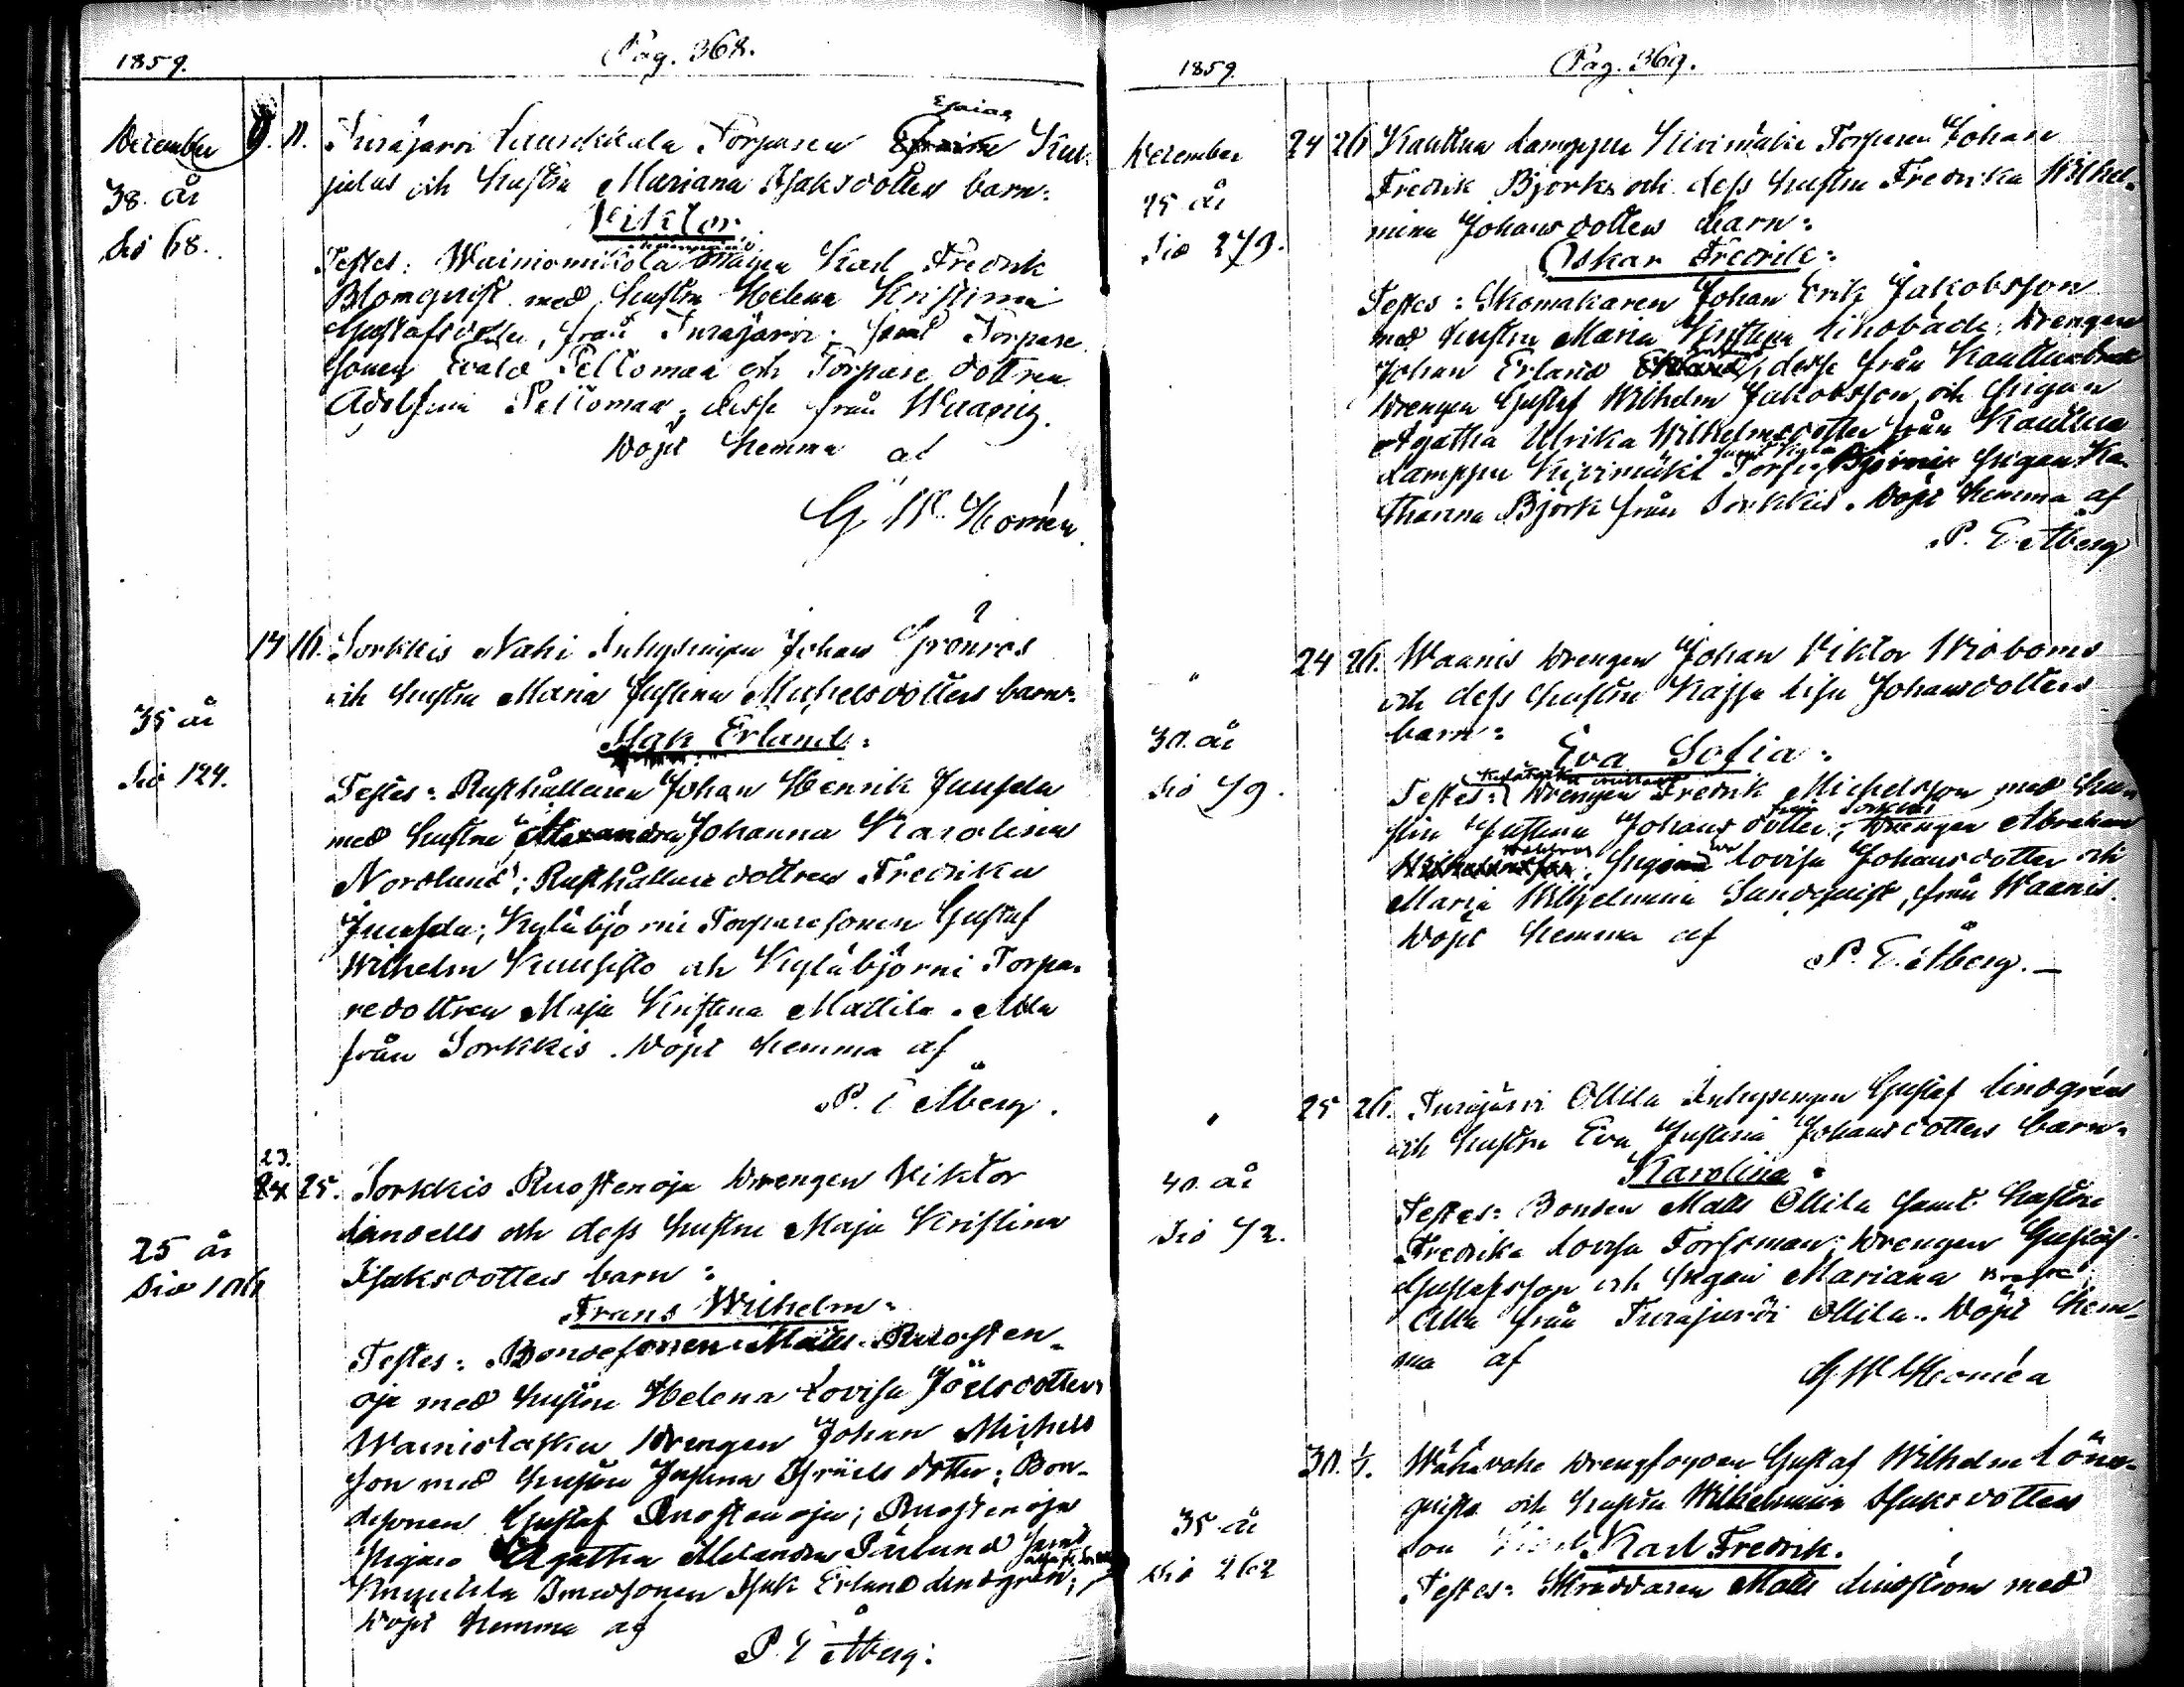 1859. Pag. 368.
December 9. 11. Turajärvi Launkkala Torparen Esaias
julas och hustru Mariana Isaksdotters barn:
38 år
Viktor.
Sid 68.
Testes: Wainiomikola Karl Fredrik
Blomqvist med hustru Helena Kristina
Gustafsdotter, från Turajärvi; samt Torpare
sonen Evald Peltomaa och Torpare dottren
Adolfina Peltomaa, desse från Waanis.
Döpt hemma af
G W Homén.
14 16. Sorkkis Naki Inhysingen Johan Grönros
och hustru Maria Justina Michelsdotters barn:
35 år
Isak Erland:
Sid 124.
Testes: Rusthållaren Johan Henrik Juusela
med hustru Johanna Karolina
Nordlund; Rusthållare dottren Fredrika
Juusela; Kyläbjörni Torparesonen Gustaf
Wilhelm Kuusisto och Kyläbjörni Torpa-
redottren Maja Kristina Mattila. Alla
från Sorkkis. Döpt hemma af
P. E Åberg.
23.
24 25. Sorkkis Ruostenoja Drengen Viktor
Lindells och dess hustru Maja Kristina
25 år
Isaksdotters barn:
Sid 106
Frans Wilhelm:
Testes: Bondesonen Matts Ruosten-
oja med hustru Helena Lovisa Joëlsdotter;
Drengen Johan Michels
son med hustru Justina Isräels dotter; Bon-
desonen Gustaf Ruostenoja; Ruostenoja
Pigan Agatha Alexandra Pärlund samt
Bondsonen Isak Erland Lindgren;
Döpt hemma af
P. E Åberg.
1859. Pag. 369.
December 24 26 Kauttua Lamppu Kivimäki Torparen Johan
Fredrik Björks och dess hustru Fredrika Wilhel-
25 år
mina Johansdotters barn:
Sid 279.
Oskar Fredrik:
Testes: Skomakaren Johan Erik Jakobsson
med hustru Maria Kristina Liljobäck; Drengen
Johan Erland desse från Kauttua
Drengen Gustaf Wilhelm Jakobsson och Pigan
Agatha Ulrika Wilhelmsdotter från Kauttua
Lamppu Kivimäki Torp; Pigan Ka-
tharina Björk från Sorkkis. Döpt hemma af
P. E. Åberg
" 24 26. Waanis Drengen Johan Viktor Widboms
och dess hustru Kajsa Lisa Johansdotters
30 år
barn:
Eva Sofia:
Sid 79.
Testes: Drengen Fredrik Michelsson med hu-
stru Justina Johansdotter, från Sorkkis; Drengen Abraham
Lovisa Johansdotter och
Maria Wilhelmina Sundqvist, från Waanis.
Döpt hemma af
P. E. Åberg.
" 25 26. Turajärvi Ollila Inhysingen Gustaf Lindgréns
och hustru Eva Justina Johansdotters barn:
40 år
Karolina:
Sid 72.
Testes: Bonden Matts Ollila samt hustru
Fredrika Lovisa Forsman; Drengen Gustaf
Gustafsson och Pigan Mariana
Alla från Turajärvi Ollila. Döpt hem-
ma af
G W Homén
30. 1/1. Wähävahe Gustaf Wilhelm Lönn-
qvists och hustru Wilhelmina Isaksdotters
35 år
son Karl Fredrik.
Sid 262
Testes: Skräddaren Matts Lindström med